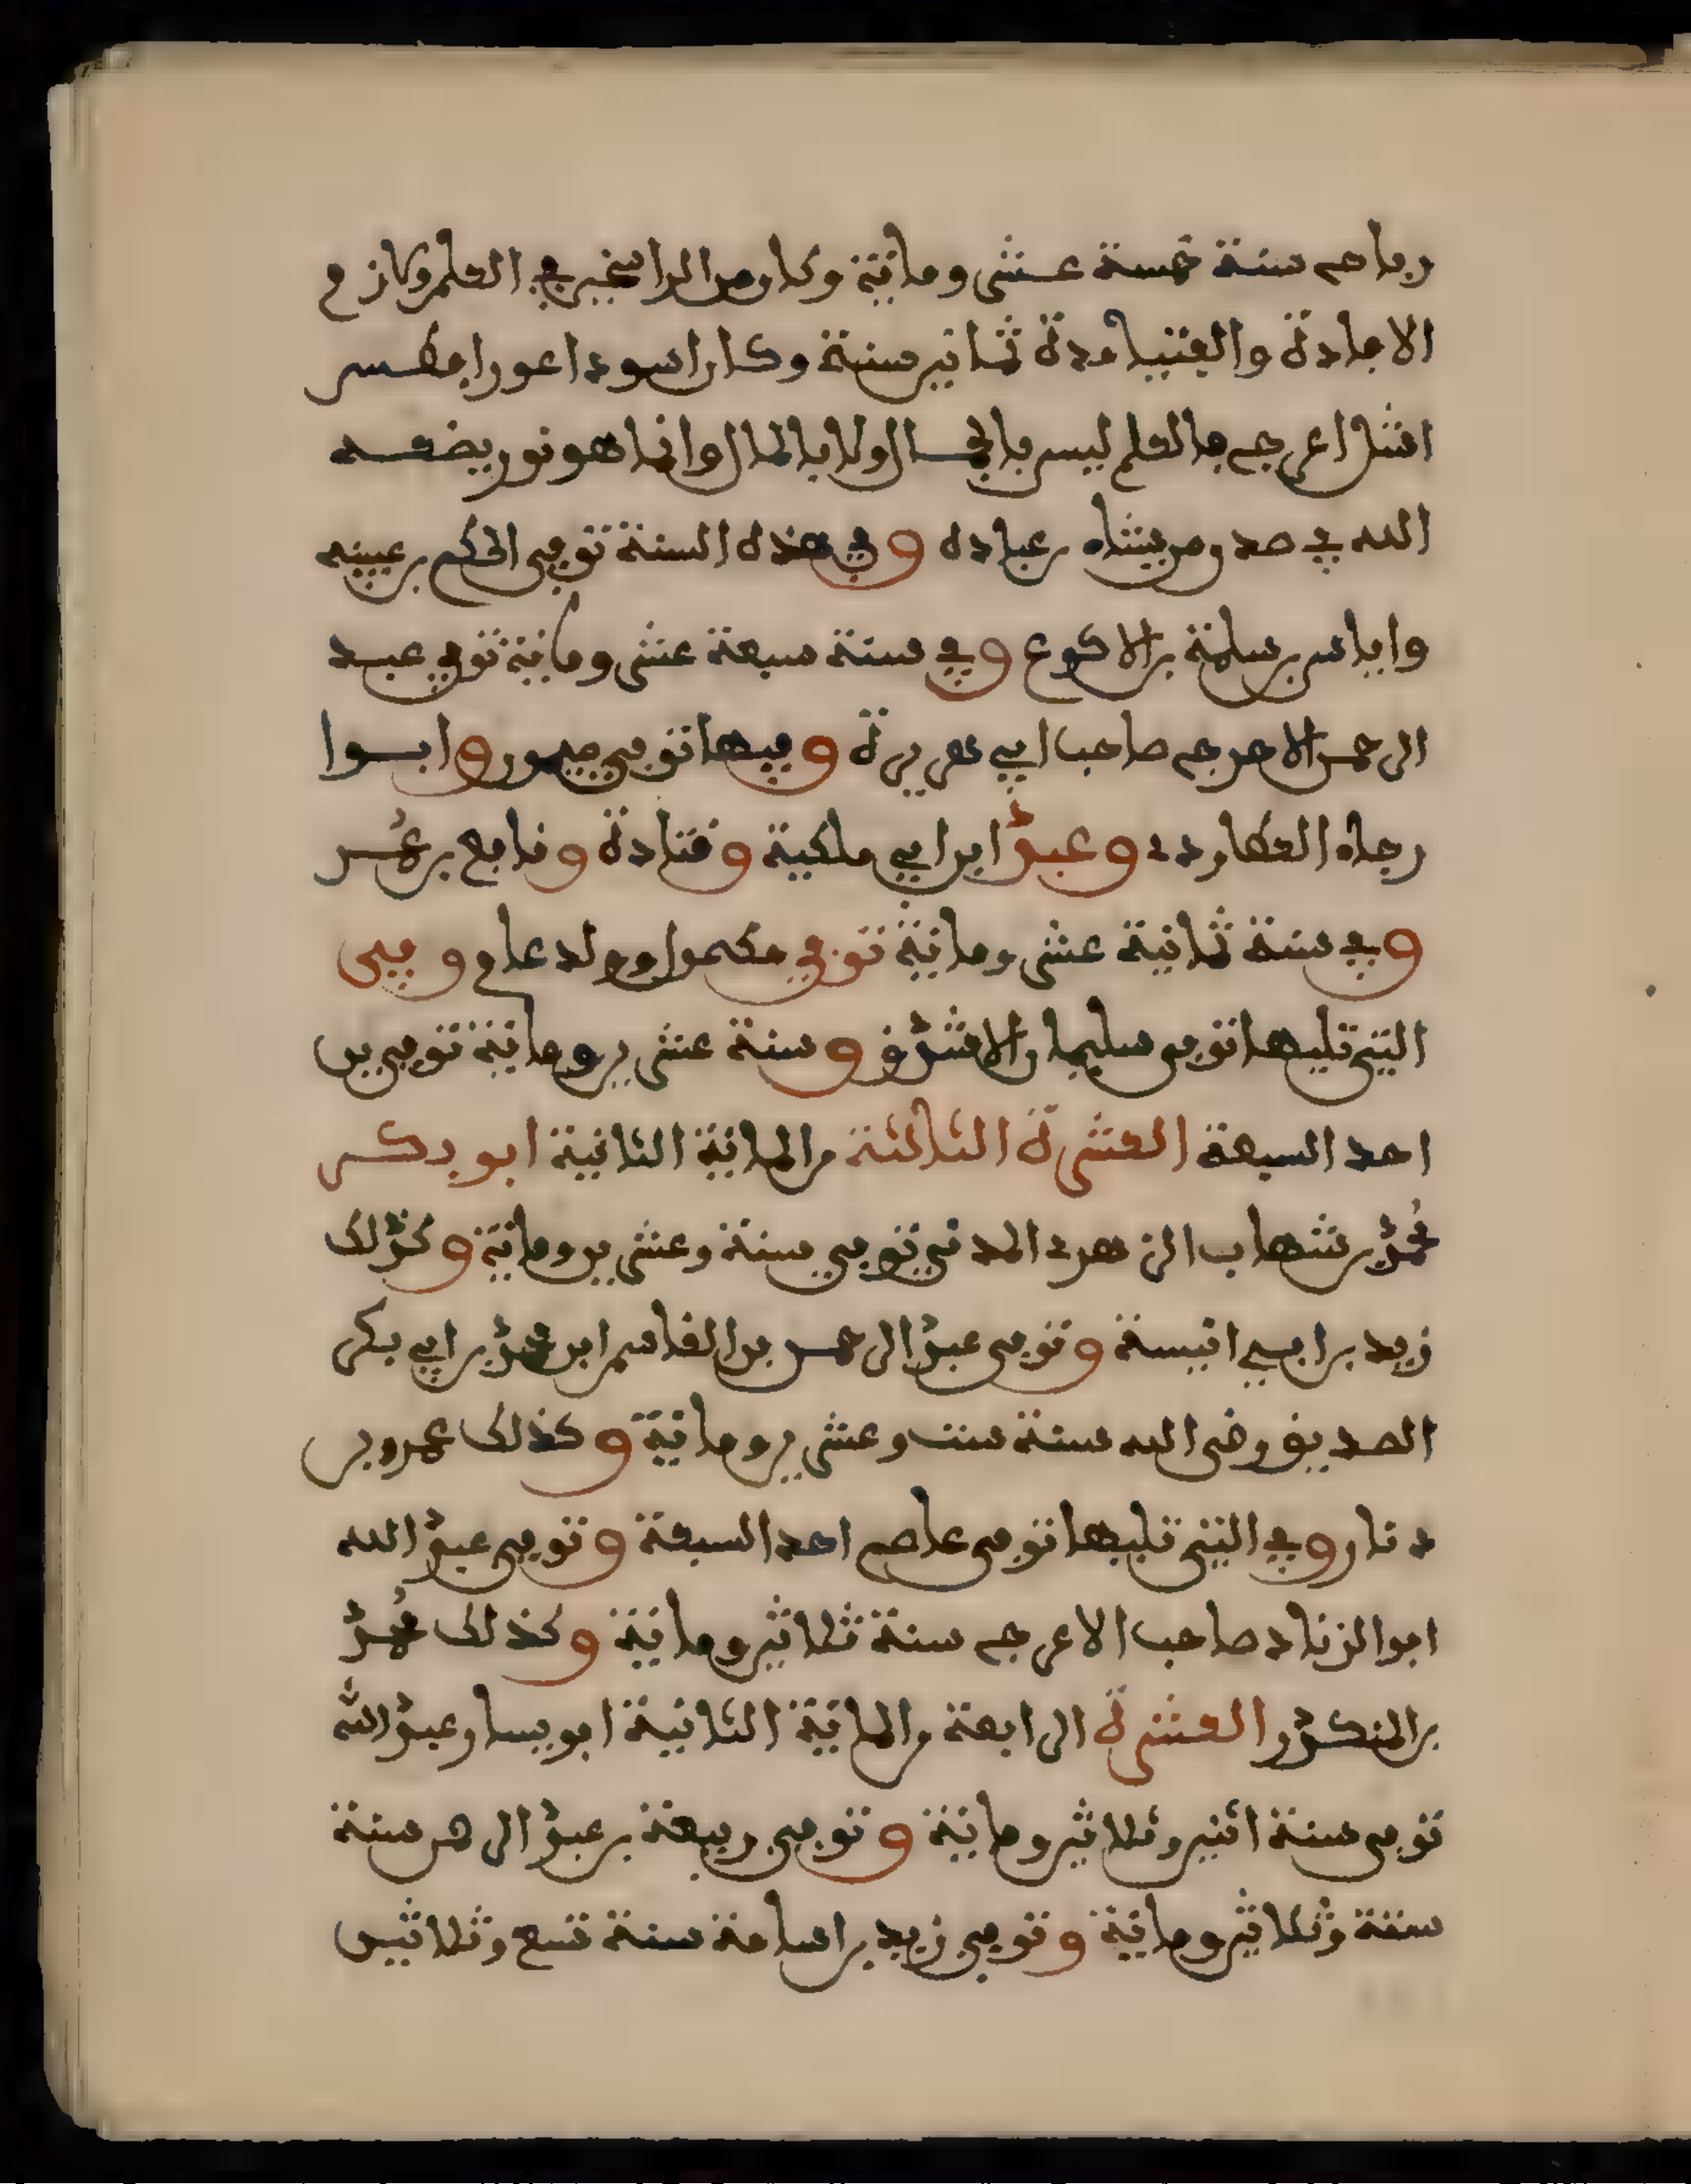 رباح سنة خمسة عشر ومائة وكان من الراسخين في العلم وكان في
الاجادة والفتيا مدة ثمانين سنة وكان اسود اعور افطس
اشل اعرج فالعلم ليس بالجمال ولا بالمال وانما هو نور يضعه
الله في صدر من يشاء من عباده وفي هذه السنة توفي الحكم بن عيينه
واياس بن سلمة بن الاكوع وفي سنة سبعة عشر ومائة توفي عبد
الرحمن الاعرج صاحب ابي هريرة وفيها توفي ميمون وابوا
رجاء العطاردي وعبد ابن ابي ملكية وقتادة ونافع بن عمر
وفي سنة ثمانية عشر ومائة توفي مكحول وولد عام وفي
التي تليها توفي سليمان الاشدق وسنة عشرين ومائة توفي بن
احد السبعة العشرة الثالثة من المائة الثانية ابو بكر
محمد بن شهاب الزهري المدني توفي سنة وعشرين ومائة وكذلك
زيد بن ابي انيسة وتوفي عبد الرحمن بن القاسم ابن محمد بن ابي بكر
الصديق رضي الله سنة ست وعشرين ومائة وكذلك عمرو بن
دنار وفي التي تليها توفي عاصم احد السبعة وتوفي عبد الله
ابو الزناد صاحب الاعرج سنة ثلاثين ومائة وكذلك محمد
بن المنكدر العشرة الرابعة من المائة الثانية ابو يسار عبد الله
توفي سنة اثنين وثلاثين ومائة وتوفي ربيعة بن عبد الرحمن سنة
ستة وثلاثين ومائة وتوفي زيد بن اسامة سنة تسع وثلاثين